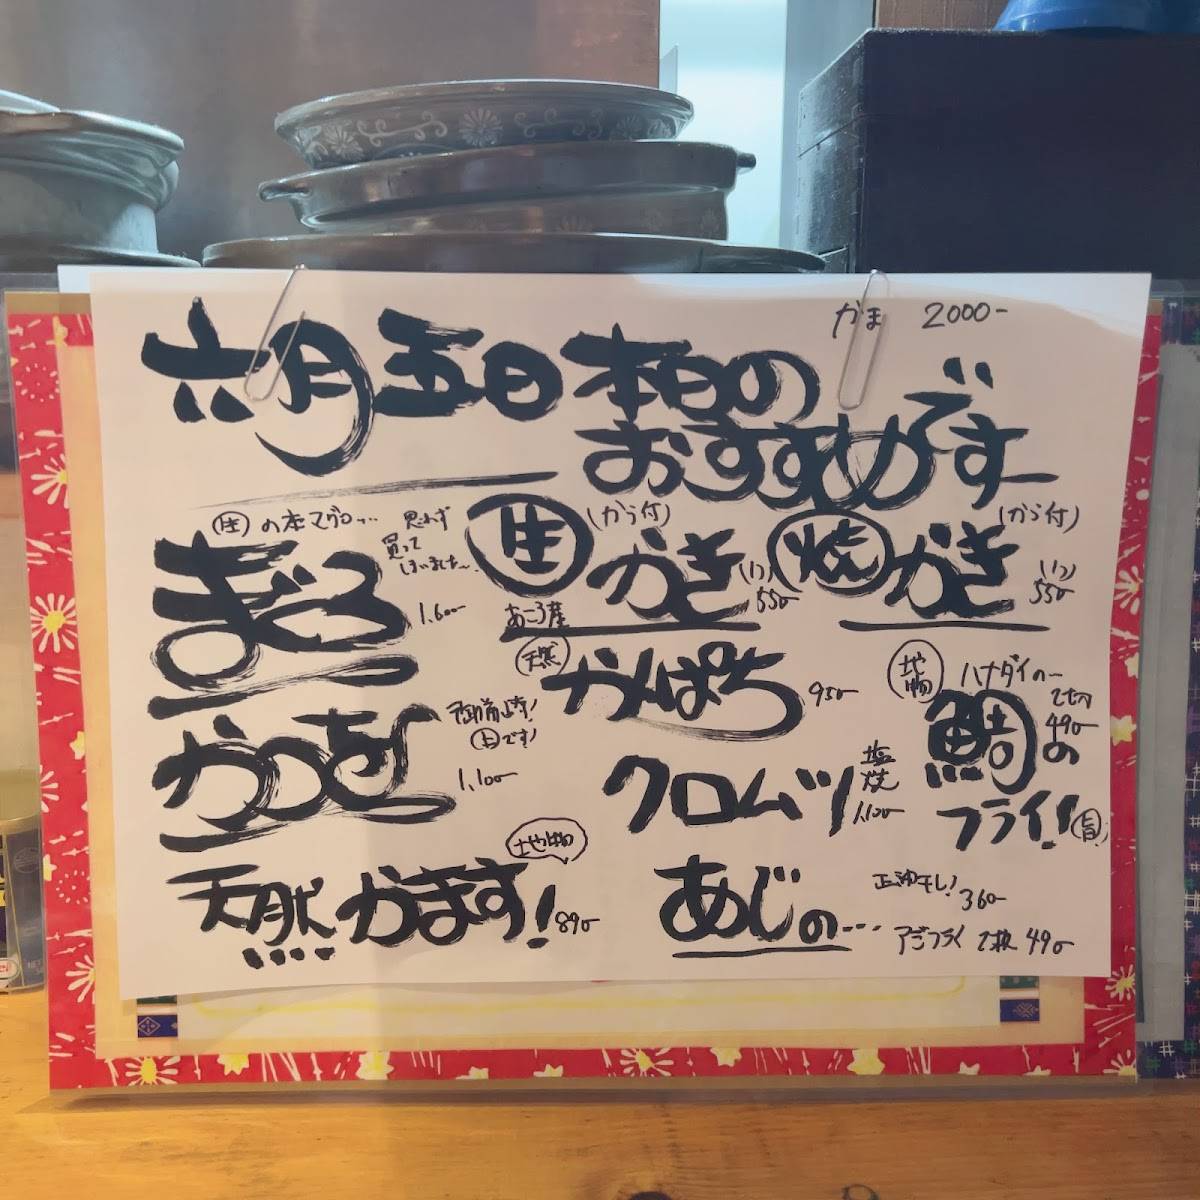 かま 2000-
六月五日 本日の
おすすめです
生 の本マグロ… 思わず
買って
しまいました〜
まぐろ 1.600
生 (から付)
かき (1ヶ) 550
焼 (から付)
かき (1ヶ) 550
かつを 御前崎!
上です! 1,100
天然 かんぱち 950
地物 ハナダイの
2切 490
鯛の
フライ!
クロムツ 塩焼 1,100
天然かます! 地物 890
あじの… 丸干し! 360
アジフライ 2枚 490